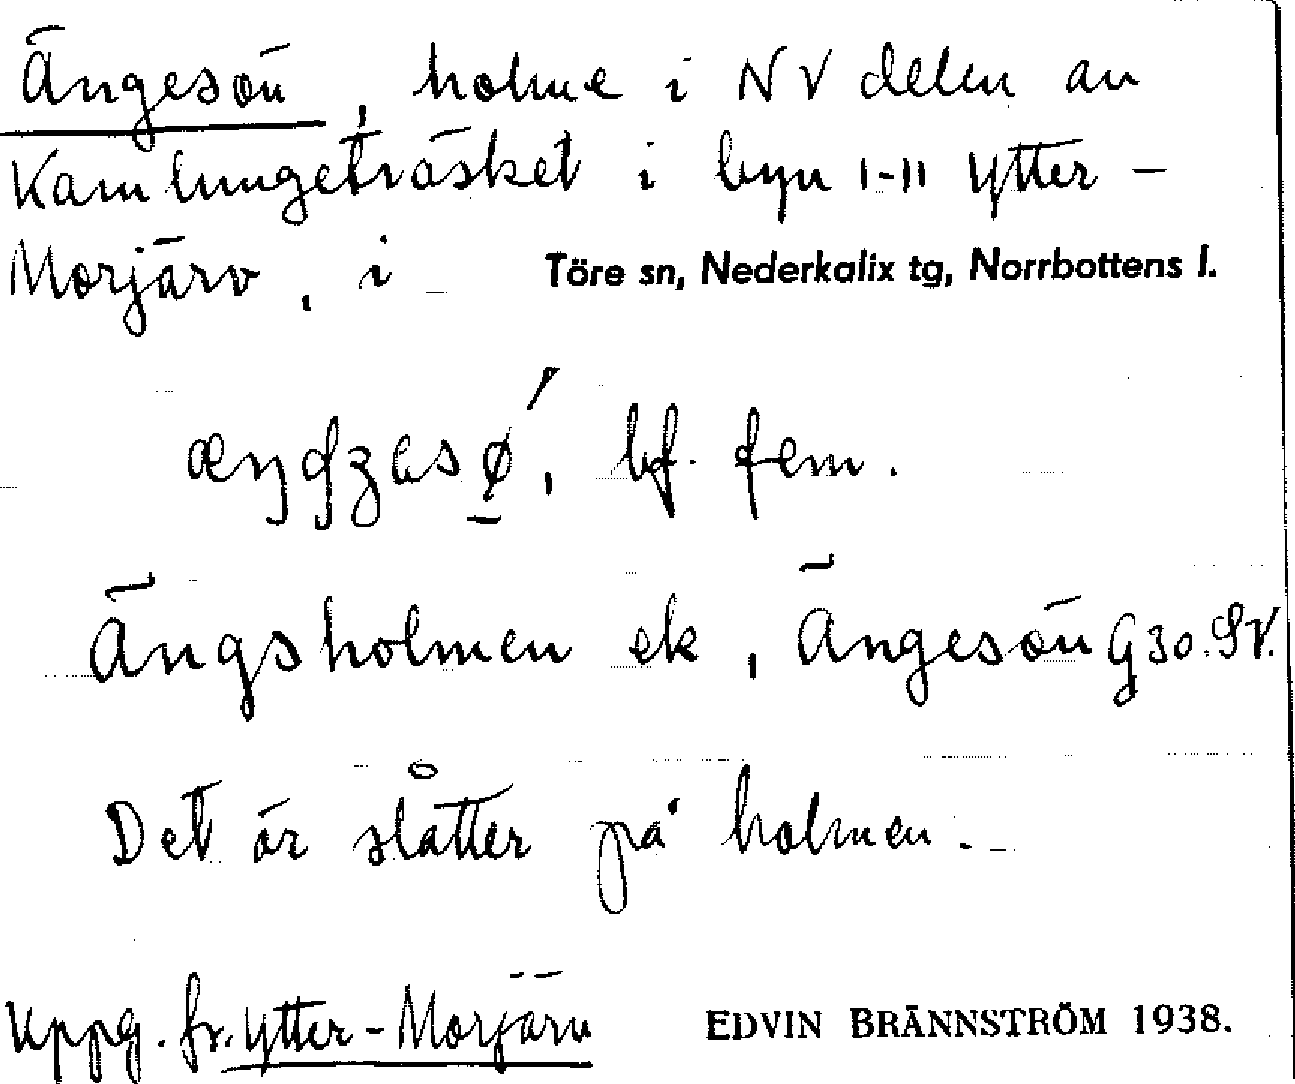 Ängesön, holme i NV delen av
Kamlungeträsket i byn 1-11 Ytter-
Morjärv, i Töre sn, Nederkalix tg, Norrbottens l.
bf. fem.
Ängsholmen ek, Ängesön G30.SV.
Det är slåtter på holmen.
Uppg. fr. Ytter-Morjärv EDVIN BRÄNNSTRÖM 1938.